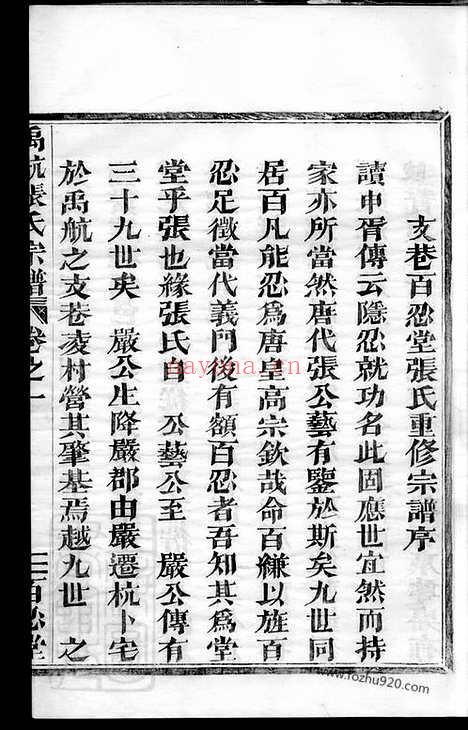 支巷百忍堂張氏重修宗譜序
讀申胥傳云隱忍就功名此固應世宜然而持
家亦所當然唐代張公藝有鑒於斯矣九世同
居百凡能忍爲唐皇高宗欽哉命百縑以旌百
忍足徵當代義門後有額百忍者吾知其爲堂
堂乎張也緣張氏自 公藝公至 嚴公傳有
三十九世矣 嚴公生降嚴郡由嚴遷杭卜宅
於禹航之支巷凌村營其肇基焉越九世 之
禹航張氏宗譜 卷之一 百忍堂
nayona.cn
www.fozhu920.com